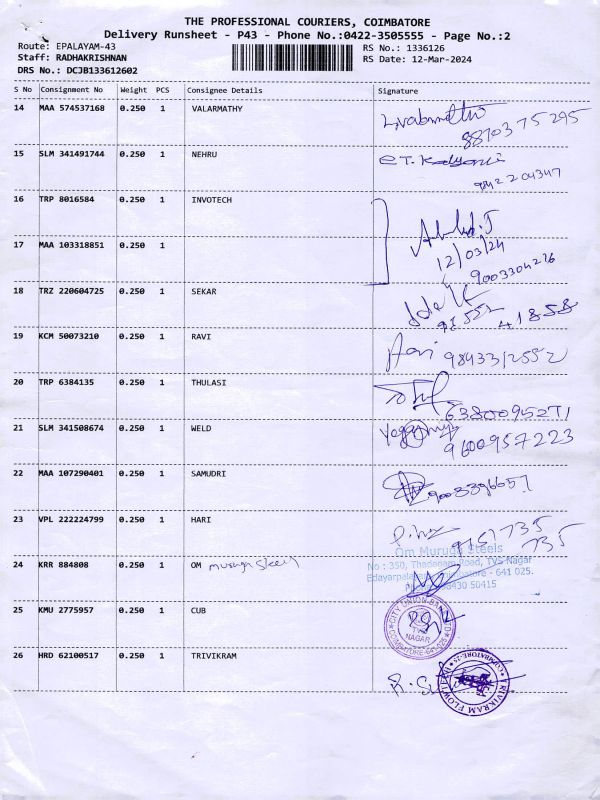 THE PROFESSIONAL COURIERS, COIMBATORE
Delivery Runsheet - P43 - Phone No.:0422-3505555 - Page No.:2
Route: EPALAYAM-43
RS No.: 1336126
Staff: RADHAKRISHNAN
RS Date: 12-Mar-2024
DRS No.: DCJB133612602
S No Consignment No Weight PCS Consignee Details Signature
14 MAA 574537168 0.250 1 VALARMATHY
88703 75295
15 SLM 341491744 0.250 1 NEHRU
9842204347
16 TRP 8016584 0.250 1 INVOTECH
17 MAA 103318851 0.250 1
12/03/24
9003304226
18 TRZ 220604725 0.250 1 SEKAR
41858
19 KCM 50073210 0.250 1 RAVI
9843312552
20 TRP 6384135 0.250 1 THULASI
6380095271
21 SLM 341508674 0.250 1 WELD
9600957223
22 MAA 107290401 0.250 1 SAMUDRI
23 VPL 222224799 0.250 1 HARI
735
Om Muruga Steels
24 KRR 884808 0.250 1 OM muruga steel
No : 350, Thadagam Road, TVS Nagar
Edayarpalayam, Coimbatore - 641 025.
50415
25 KMU 2775957 0.250 1 CUB
CITY UNION BANK LTD
TVS
NAGAR
COIMBATORE-641 025
26 HRD 62100517 0.250 1 TRIVIKRAM
TRIVIKRAM FLOWTECH
COIMBATORE-25